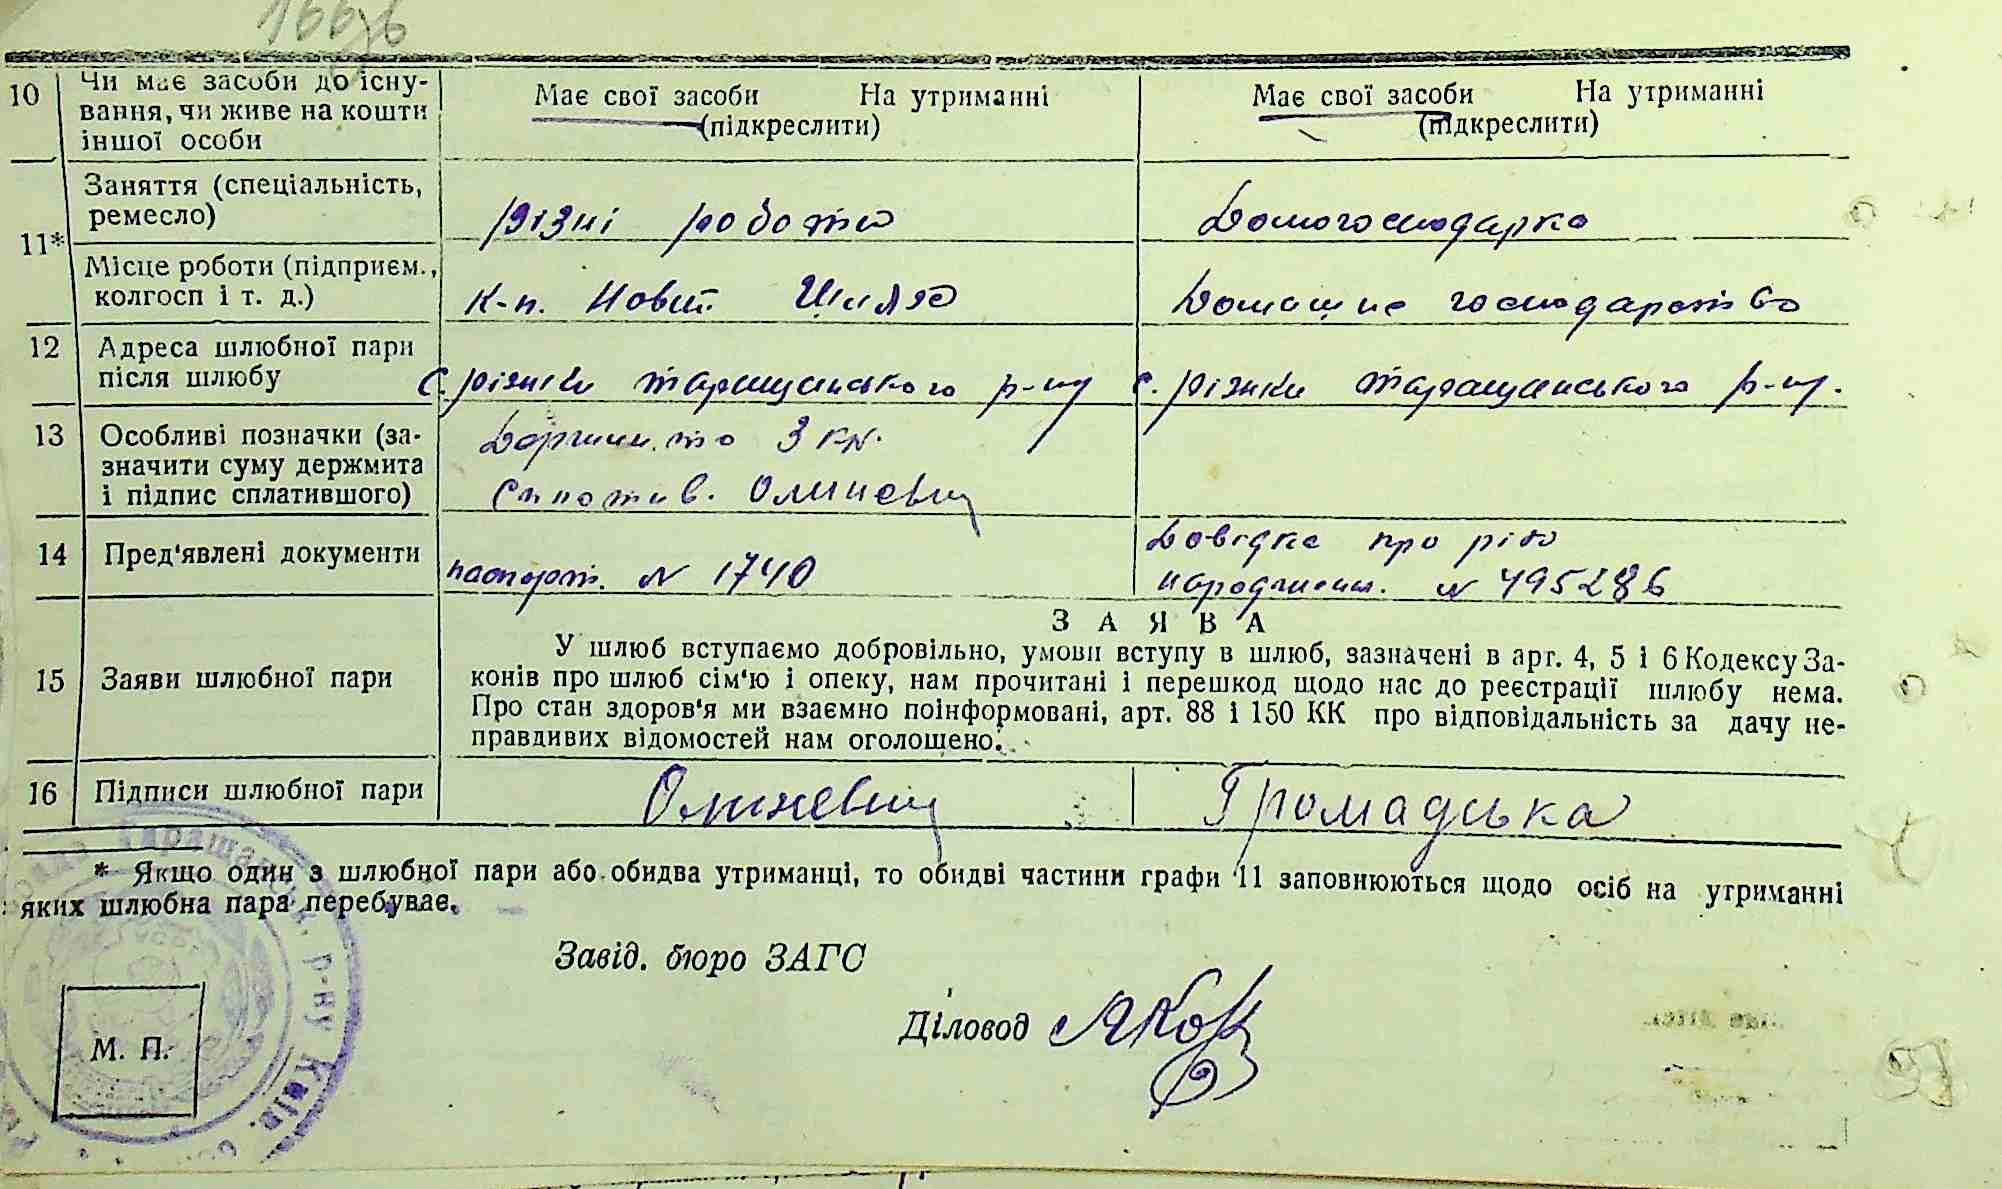 166зв
10 Чи має засоби до існу- Має свої засоби На утриманні Має свої засоби На утриманні
вання, чи живе на кошти (підкреслити) (підкреслити)
іншої особи
11* Заняття (спеціальність,
ремесло) різні роботи Домогосподарка
Місце роботи (підприєм.,
колгосп і т. д.) к-п. Новий Шлях Домашнє господарство
12 Адреса шлюбної пари
після шлюбу с. Ріжки Таращанського р-ну с. Ріжки Таращанського р-ну.
13 Особливі позначки (за- Держмито 3 кр.
значити суму держмита
і підпис сплатившого) Сплатив. Олиневич
14 Пред'явлені документи паспорт. № 1740 Довідка про рік
народження. № 495286
З А Я В А
15 Заяви шлюбної пари У шлюб вступаємо добровільно, умови вступу в шлюб, зазначені в арт. 4, 5 і 6 Кодексу За-
конів про шлюб сім'ю і опеку, нам прочитані і перешкод щодо нас до реєстрації шлюбу нема.
Про стан здоров'я ми взаємно поінформовані, арт. 88 і 150 КК про відповідальність за дачу не-
правдивих відомостей нам оголошено.
16 Підписи шлюбної пари Олиневич Громадська
* Якщо один з шлюбної пари або обидва утриманці, то обидві частини графи 11 заповнюються щодо осіб на утриманні
яких шлюбна пара перебуває.
Завід. бюро ЗАГС
Діловод
М. П.
р-ну Київ.